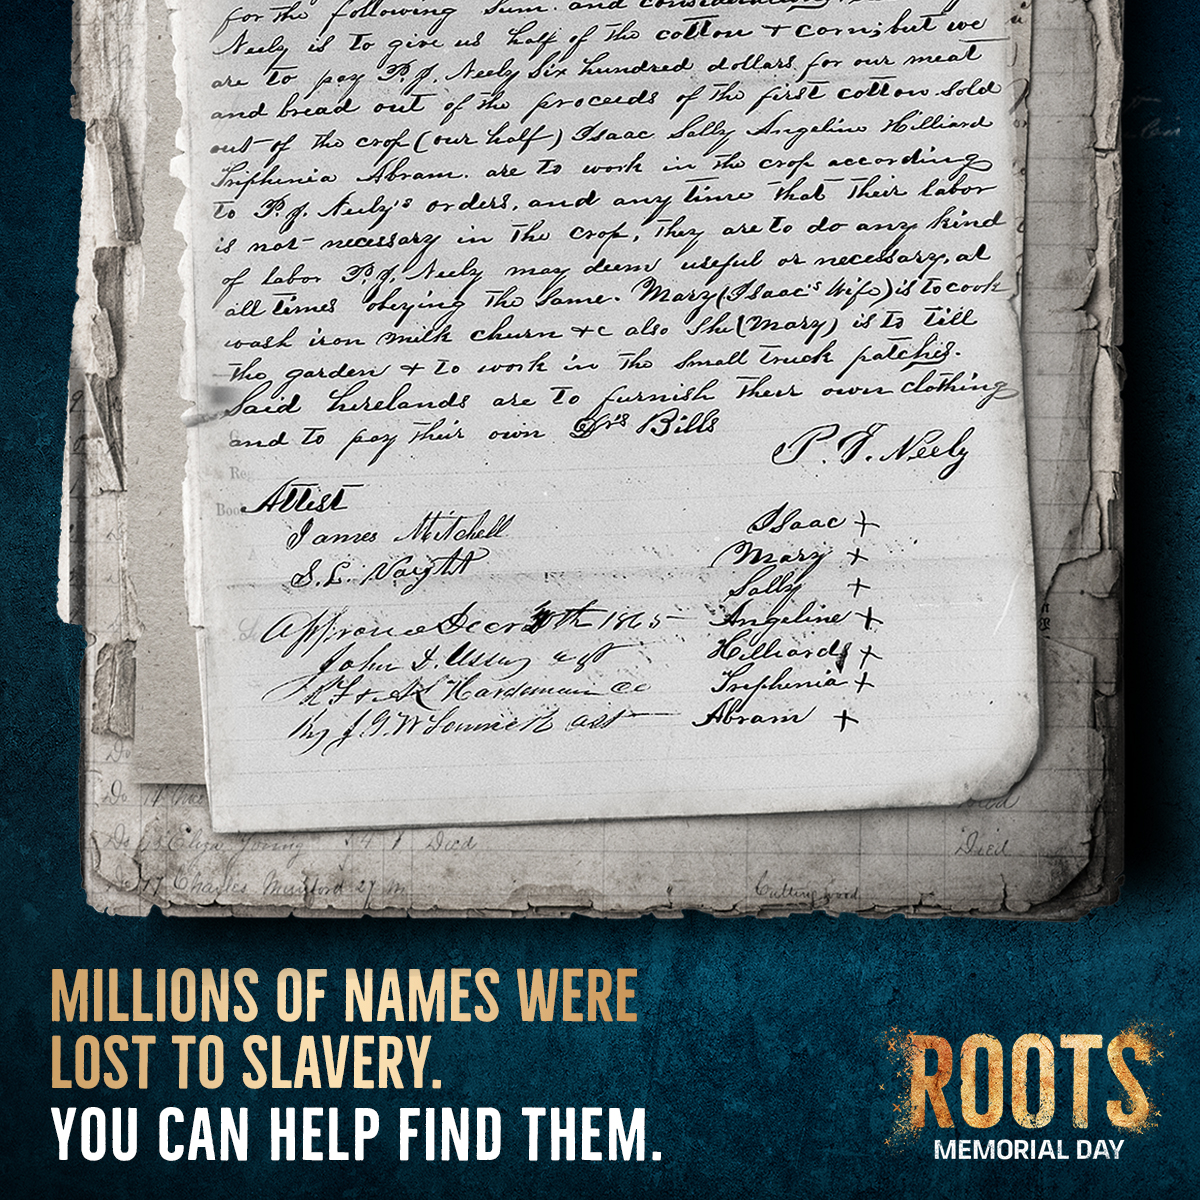 for the following Sum. and consideration.
Neely is to give us half of the cotton + corn; but we
are to pay P. J. Neely Six hundred dollars for our meat
and bread out of the proceeds of the first cotton sold
out of the crop (our half) Isaac Sally Angeline Hilliard
Triphenia Abram. are to work in the crop according
to P. J. Neely's orders. and any time that their labor
is not necessary in the crop, they are to do any kind
of labor P. J. Neely may deem useful or necessary, at
all times obeying the Same. Mary (Isaac's Wife) is to cook
wash iron milk churn &c also She (Mary) is to till
the garden + to work in the small truck patches.
Said hirelands are to furnish their own clothing
and to pay their own Drs Bills
P. J. Neely
Attest
James Mitchell
S. L.
Isaac +
Mary +
Sally +
Angeline +
Hilliard +
Triphenia +
Abram +
1865
John
Eliza Young Died
Died
Charles 27 m
Cutting wood
MILLIONS OF NAMES WERE
LOST TO SLAVERY.
YOU CAN HELP FIND THEM.
ROOTS
MEMORIAL DAY